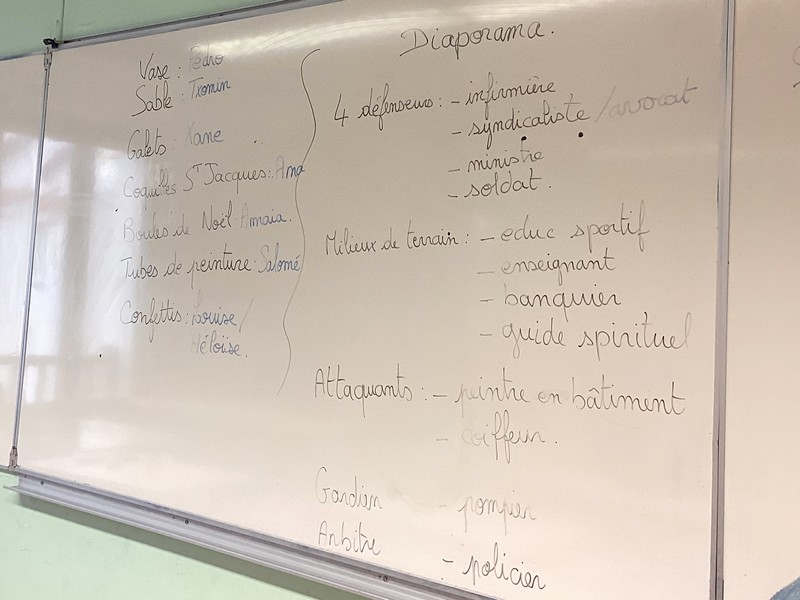 Vase : Pedro
Sable : Txomin
Galets : Xane
Coquilles St Jacques : Ama
Boules de Noël Amaia.
Tubes de peinture : Salomé
Confettis : Louise /
Héloïse.
Diaporama.
4 défenseurs : - infirmière
- syndicaliste / avocat
- ministre
- soldat.
Milieux de terrain : - educ sportif
- enseignant
- banquier
- guide spirituel
Attaquants : - peintre en bâtiment
- coiffeur.
Gardien - pompier
Arbitre - policier